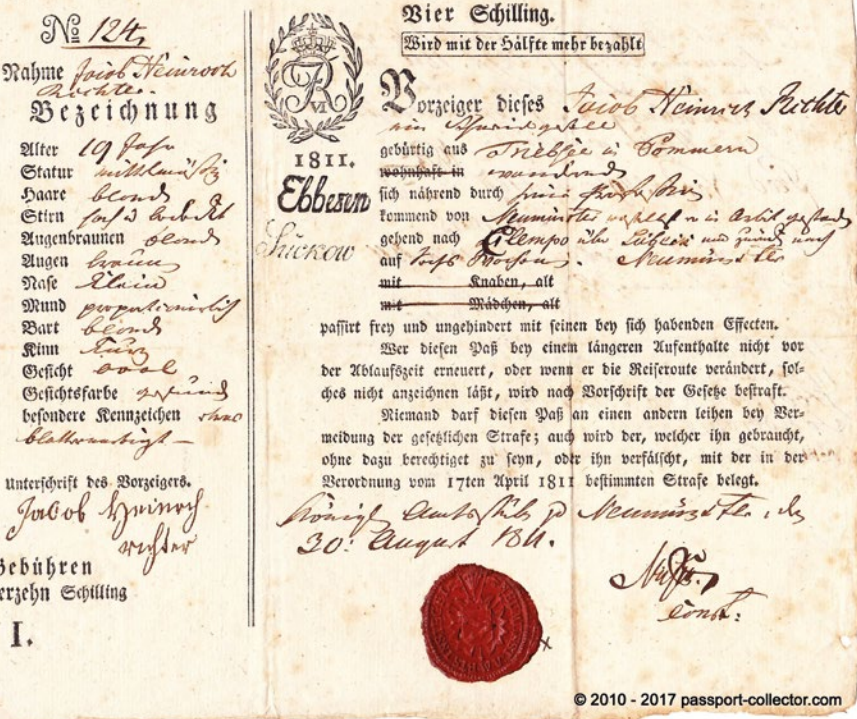 No 124,
Nahme Jacob Heinrich
Richter.
Bezeichnung
Alter 19 Jahr
Statur mittelmäßig
Haare blond
Stirn hoch u bedeckt
Augenbraunen blond
Augen braun
Nase klein
Mund proportionirlich
Bart blond
Kinn kurz
Gesicht oval
Gesichtsfarbe gesund
besondere Kennzeichen ohne
blatternarbigt
unterschrift des Vorzeigers.
Jacob Heinrich
richter
Gebühren
erzehn Schilling
I.
FR
VI
1811.
Ebbesen
Suckow
Vier Schilling.
Wird mit der Hälfte mehr bezahlt
Vorzeiger dieses Jacob Heinrich Richter
ein
gebürtig aus Triebsee in Pommern
wohnhaft in wandernd
sich nährend durch seine Profession
kommend von Neumünster in Arbeit gestanden
gehend nach über Lübeck und zurück nach
auf sechs Wochen. Neumünster
mit Knaben, alt
mit Mädchen, alt
passirt frey und ungehindert mit seinen bey sich habenden Effecten.
Wer diesen Paß bey einem längeren Aufenthalte nicht vor
der Ablaufszeit erneuert, oder wenn er die Reiseroute verändert, sol-
ches nicht anzeichnen läßt, wird nach Vorschrift der Gesetze bestraft.
Niemand darf diesen Paß an einen andern leihen bey Ver-
meidung der gesetzlichen Strafe; auch wird der, welcher ihn gebraucht,
ohne dazu berechtiget zu seyn, oder ihn verfälscht, mit der in der
Verordnung vom 17ten April 1811 bestimmten Strafe belegt.
Königl Amtsstube zu Neumünster, den
30. August 1811.
const:
© 2010 - 2017 passport-collector.com